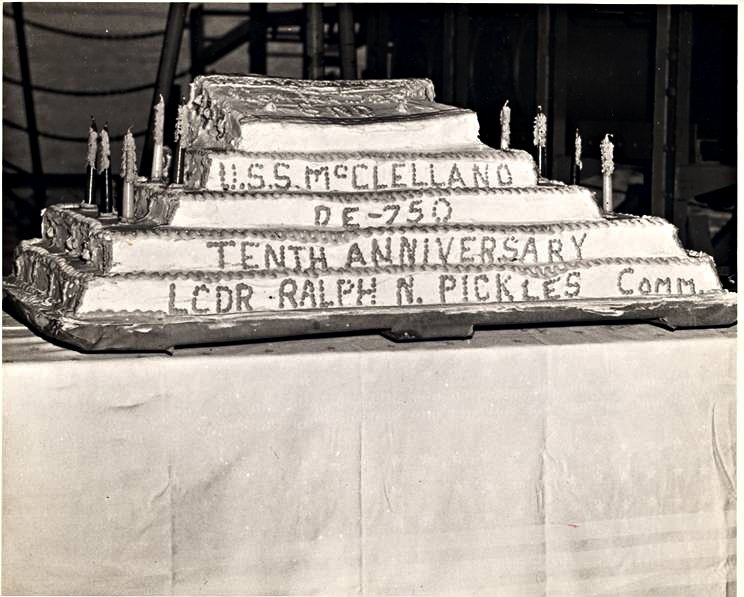 U.S.S. McCLELLAND
DE-750
TENTH ANNIVERSARY
LCDR RALPH N. PICKLES Comm.